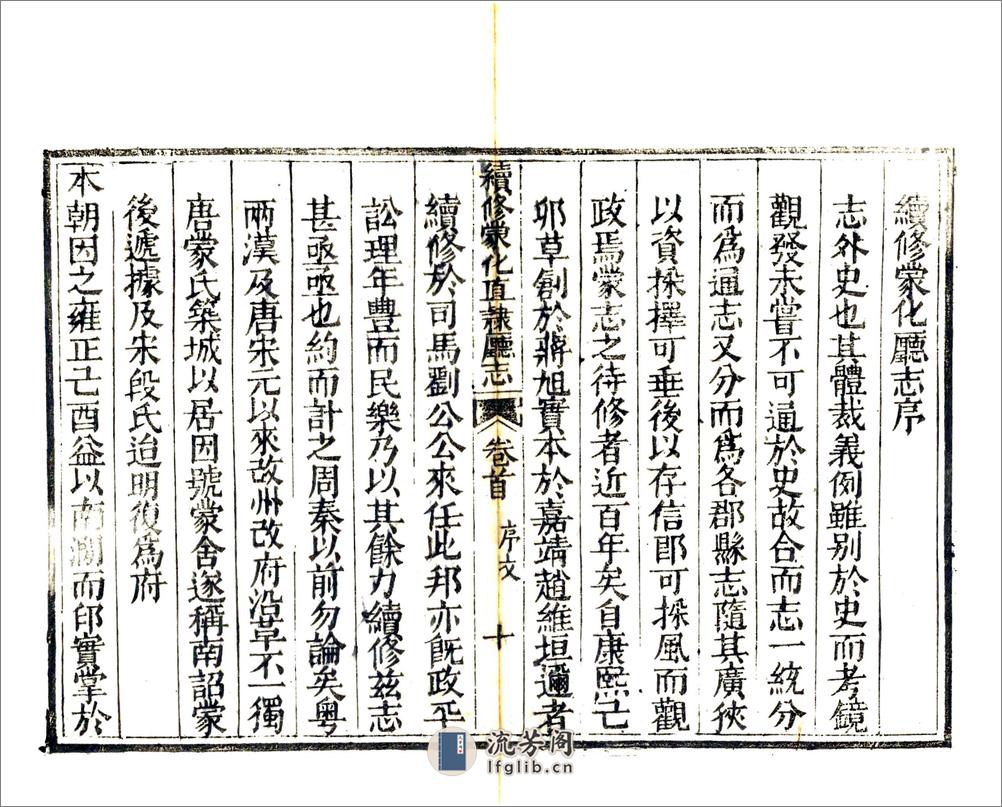 續修蒙化廳志序
志外史也其體裁義例雖别於史而考鏡
觀發未嘗不可通於史故合而志一統分
而爲通志又分而爲各郡縣志隨其廣狹
以資採擇可垂後以存信即可採風而觀
政焉蒙志之待修者近百年矣自康熙己
耶草創於蔣旭實本於嘉靖趙維垣邇者
續修蒙化直隸廳志 卷首 序文 十
續修於司馬劉公公來任此邦亦既政平
訟理年豐而民樂乃以其餘力續修兹志
甚亟亟也約而計之周秦以前勿論矣粤
兩漢及唐宋元以來故州改府沿革不一獨
唐蒙氏築城以居因號蒙舍遂稱南詔蒙
後遞據及宋段氏迨明復為府
本朝因之雍正己酉益以南澗而印實掌於
流芳阁
lfglib.cn